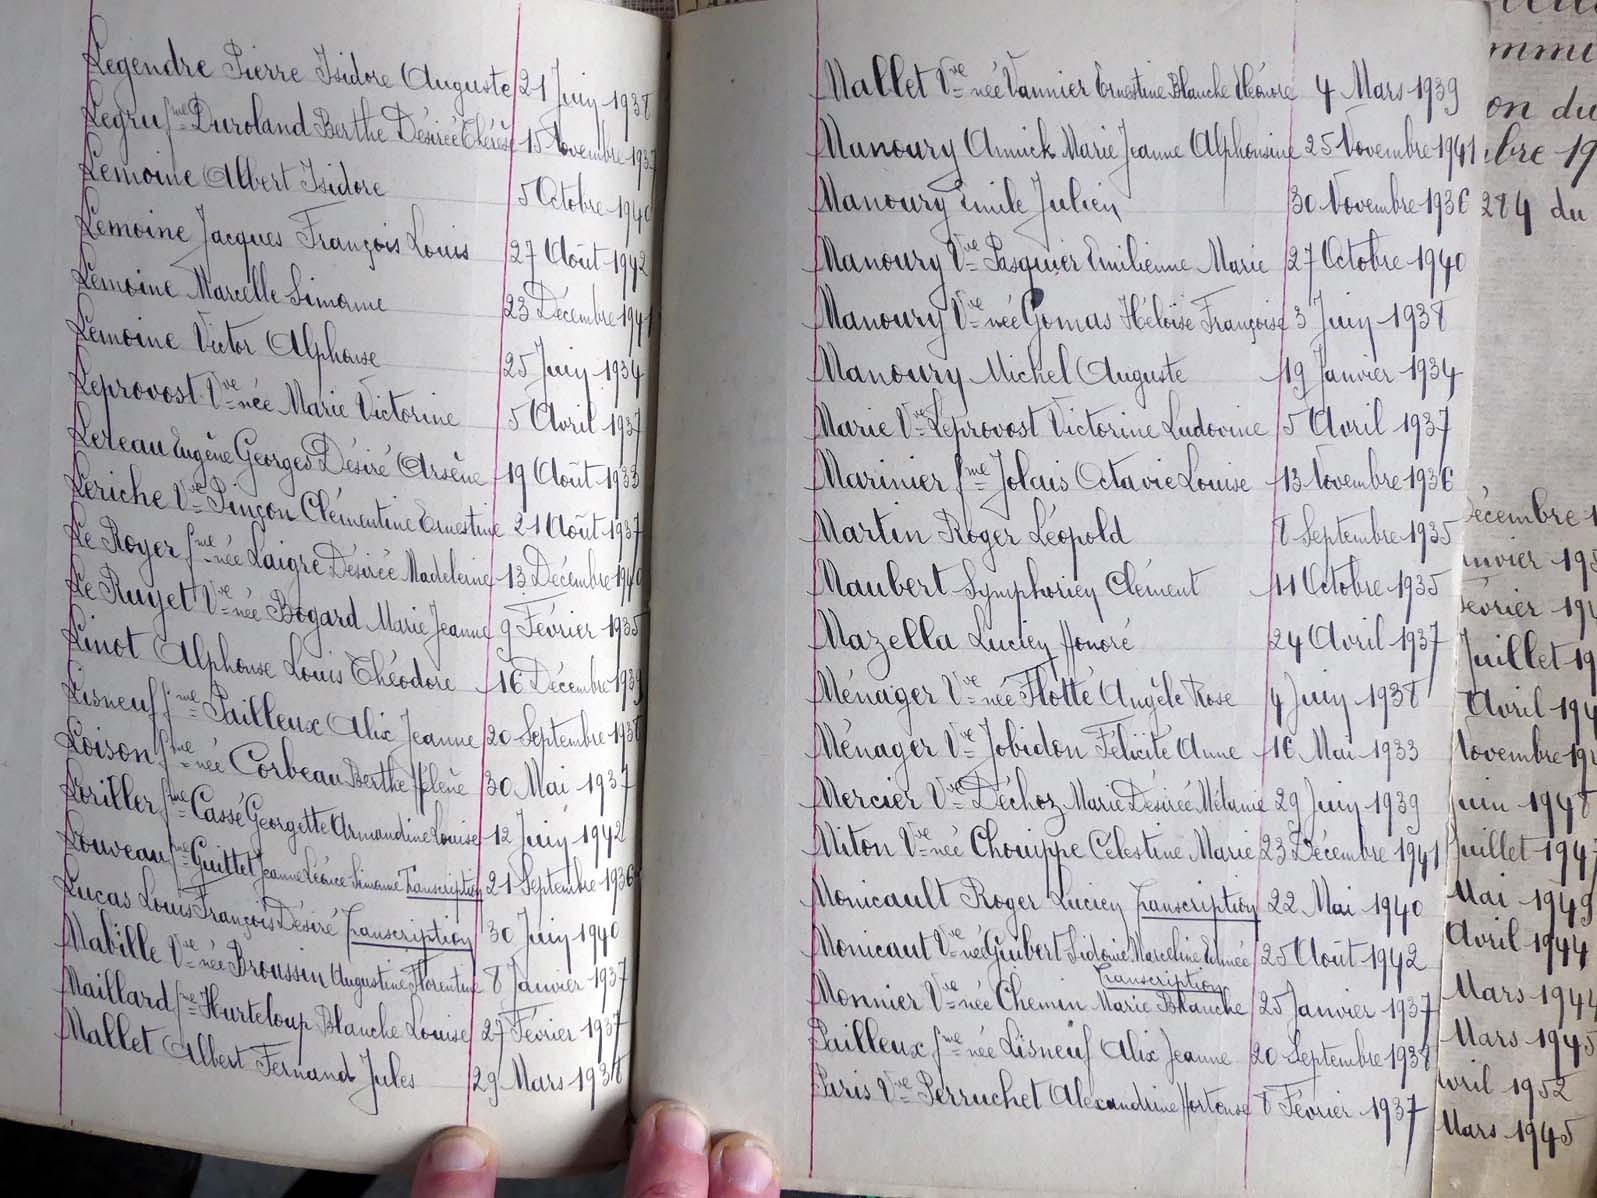 Legendre Pierre Isidore Auguste 21 Juin 1938
Legru fme Duroland Berthe Désirée Thérèse 15 Novembre 1937
Lemoine Albert Isidore 5 Octobre 1940
Lemoine Jacques François Louis 27 Août 1942
Lemoine Marcelle Simone 23 Décembre 1941
Lemoine Victor Alphonse 25 Juin 1934
Leprovost Vve née Marie Victorine 5 Avril 1937
Leteau Eugène Georges Désiré Arsène 19 Août 1933
Leriche Vve Pinçon Clémentine Ernestine 21 Août 1937
Le Royer fme née Laigre Désirée Madeleine 13 Décembre 1940
Le Ruyet Vve née Bogard Marie Jeanne 9 Février 1935
Linot Alphonse Louis Théodore 16 Décembre 1939
Lisneuf fme Pailleux Alix Jeanne 20 Septembre 1938
Loison fme née Corbeau Berthe Hélène 30 Mai 1937
Loriller fme Cassé Georgette Armandine Louise 12 Juin 1942
Louveau fme Guittet Jeanne Léonce Simonne Transcription 21 Septembre 1936
Lucas Louis François Désiré Transcription 30 Juin 1940
Mabille Vve née Broussin Augustine Florentine 8 Janvier 1937
Maillard fme Hurteloup Blanche Louise 27 Février 1937
Mallet Albert Fernand Jules 29 Mars 1938
Mallet Vve née Vannier Ernestine Blanche Éléonore 4 Mars 1939
Manoury Annick Marie Jeanne Alphonsine 25 Novembre 1941
Manoury Emile Julien 30 Novembre 1936
Manoury Vve Pasquier Emilienne Marie 27 Octobre 1940
Manoury Vve née Gomas Héloïse Françoise 3 Juin 1938
Manoury Michel Auguste 19 Janvier 1934
Marie Vve Leprovost Victorine Ludovine 5 Avril 1937
Marinier fme Jolais Octavie Louise 13 Novembre 1936
Martin Roger Léopold 8 Septembre 1935
Maubert Symphorien Clément 11 Octobre 1935
Mazella Lucien Honoré 24 Avril 1937
Ménager Vve née Flotté Angèle Rose 4 Juin 1938
Ménager Vve Jobidon Félicité Anne 16 Mai 1933
Mercier Vve Déchoz Marie Désirée Mélanie 29 Juin 1939
Miton Vve née Chouippe Célestine Marie 23 Décembre 1941
Monicault Roger Lucien Transcription 22 Mai 1940
Monicaut Vve née Guibert Sidonie Marceline Edmée 25 Août 1942
Transcription
Monnier Vve née Chemin Marie Blanche 25 Janvier 1937
Pailleux fme née Lisneuf Alix Jeanne 20 Septembre 1938
Paris Vve Perruchet Alexandrine Hortense 8 Février 1937
on du
bre 19
284 du
écembre 1
anvier 195
évrier 194
Juillet 19
Avril 194
Novembre 194
juin 1948
Juillet 1947
Mai 1949
Avril 1944
Mars 1944
Mars 1945
vril 1952
Mars 1945